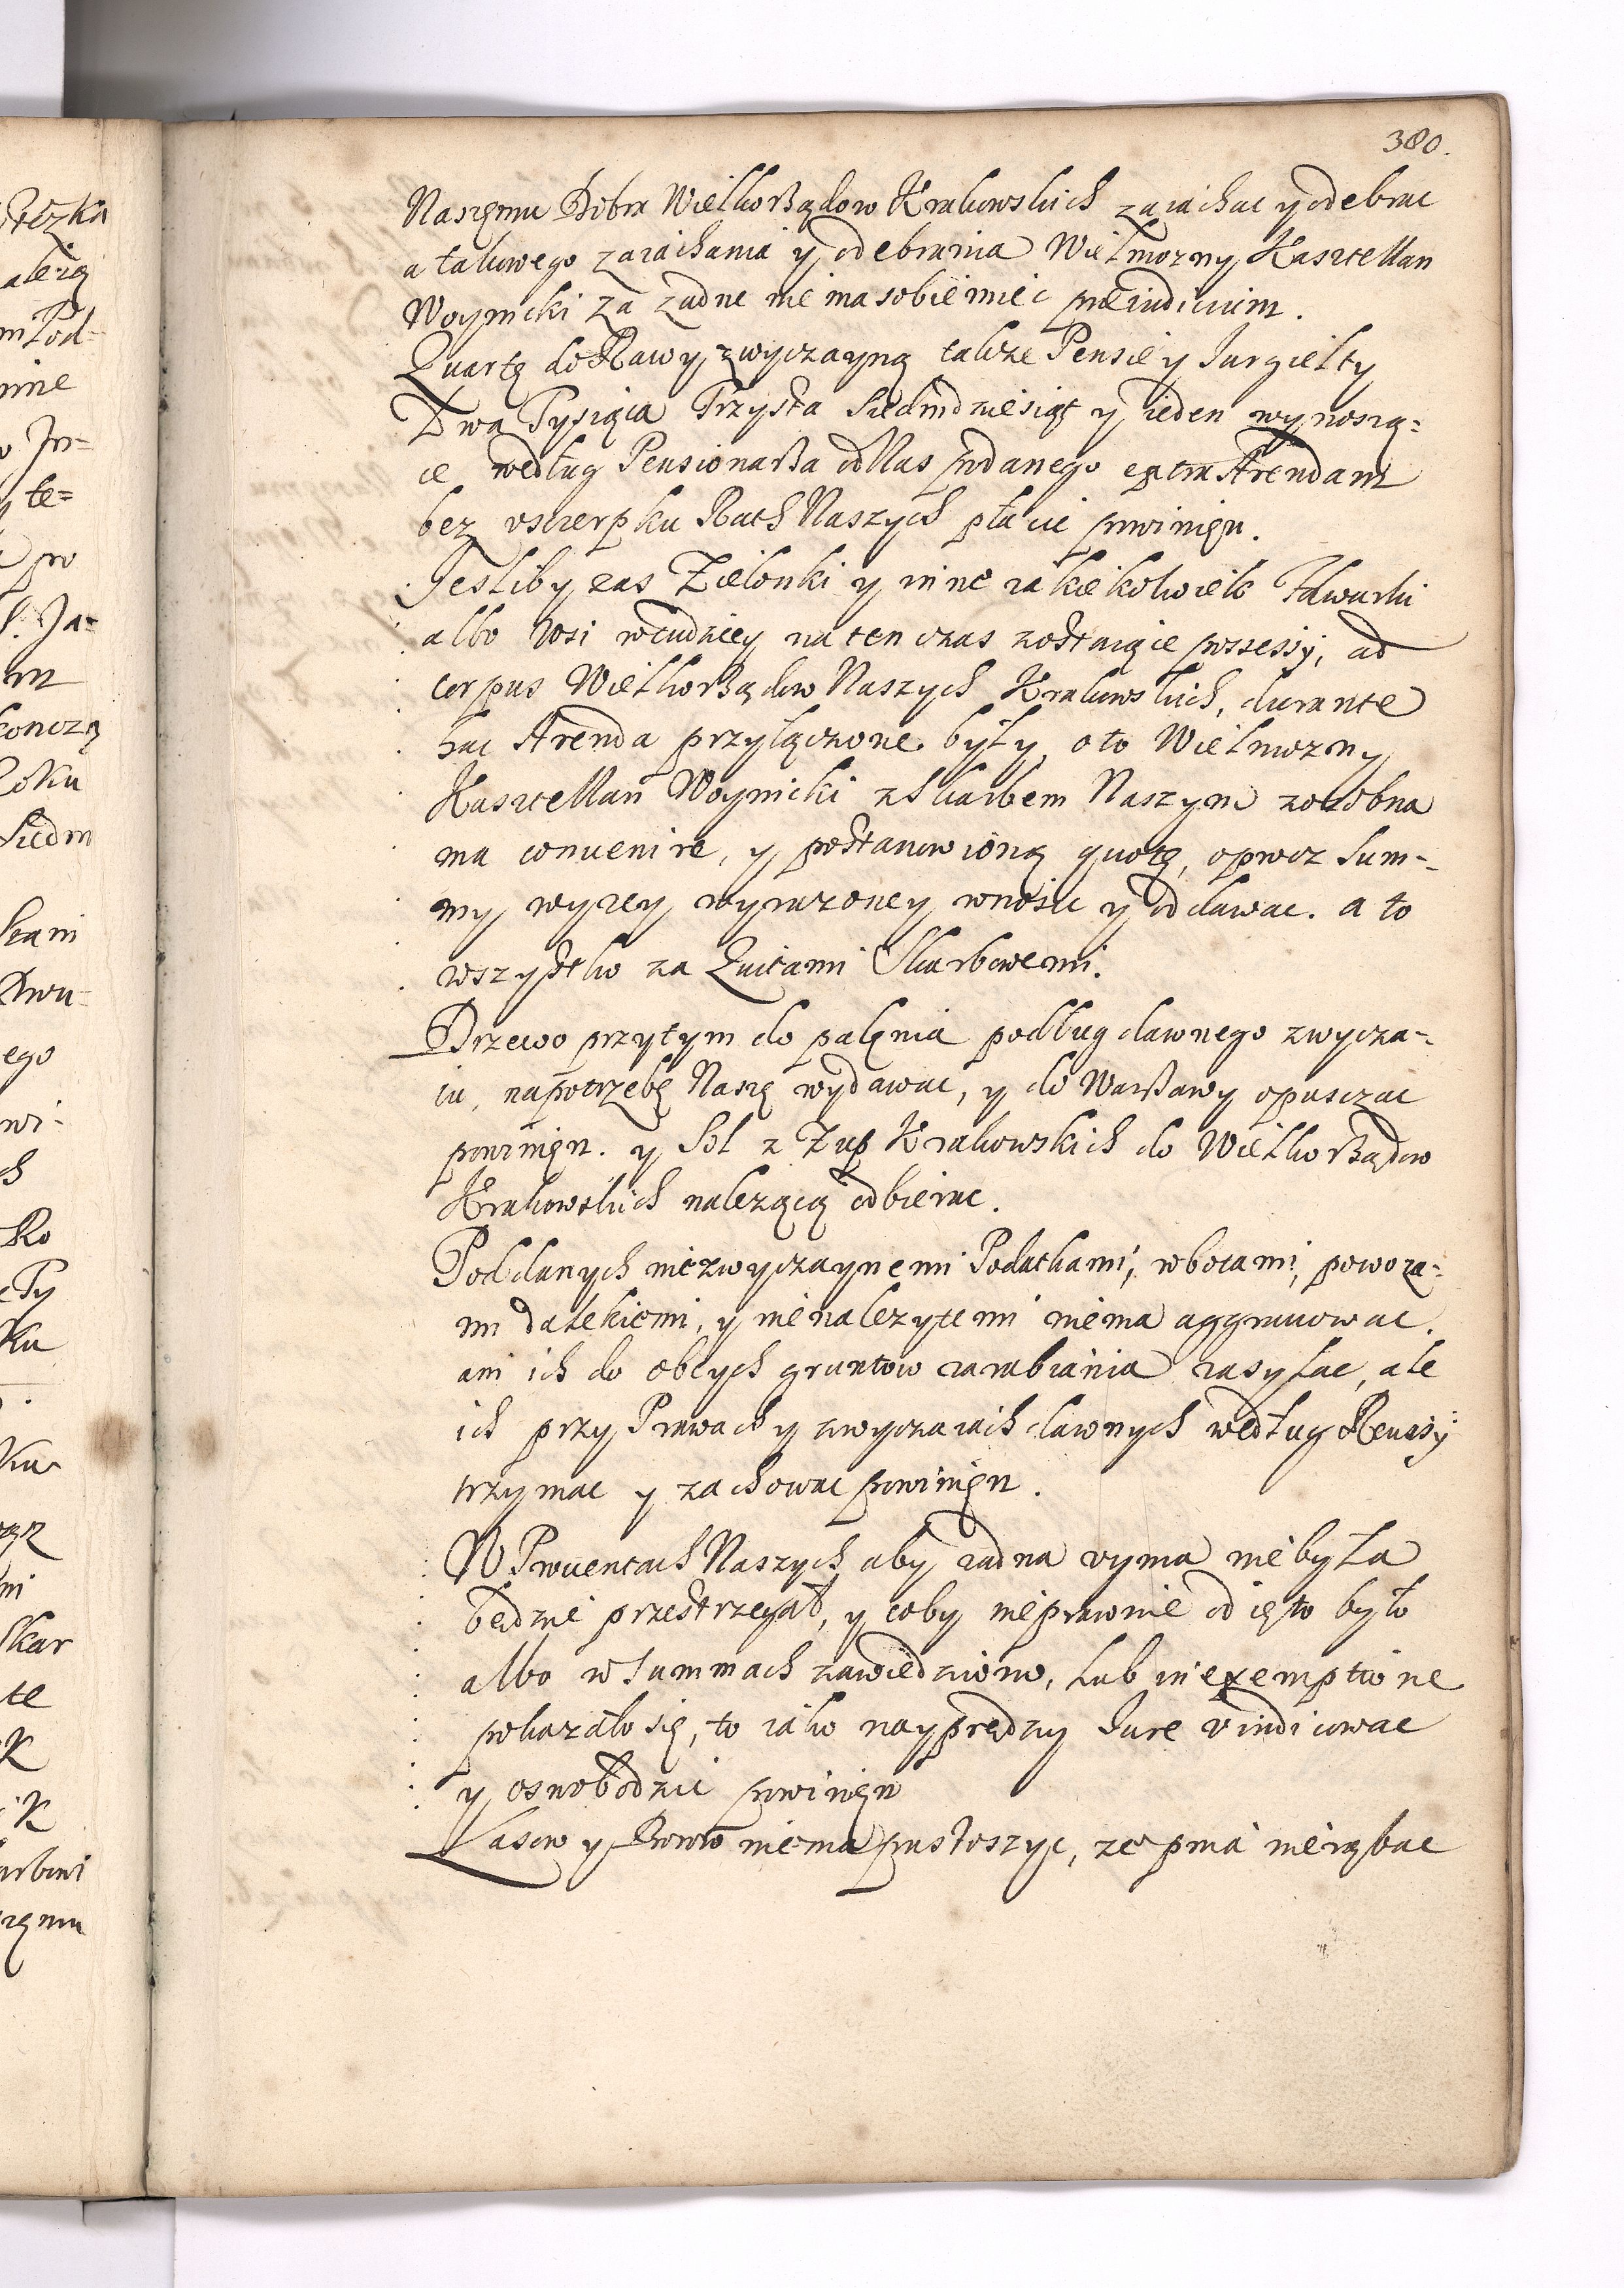 380.
Naszęmu Dobra Wielkorządow Krakowskich zaiachac y odebrac
a takowego zaiachania y odebrania Wielmozny Kasztellan
Woynicki za zadne nie ma sobie miec praeiudicium.
Quartę do Rawy zwyczayną takze Pensie y Iurgielty
Dwa Tysiąca Trzysta Siedmdziesiąt y ieden wynosżą=
ce według Pensionarza od Nas podanego extra Arendam
bez vszczerpku Rath Naszych płacic powinięn.
Jesliby zas Zielonki y inne iakiekolwiek Folwarki
albo Wsi w cudzey na ten czas zostaiące possessy, ad
corpus Wielkorządow Naszych Krakowskich, durante
hac Arenda przyłączone były, o to Wielmozny
Kasztellan Woynicki z Skarbem Naszym zosobna
ma conuenire, y postanowioną quotę, oprocz Sum-
my wyzey wyrazoney wnosic y oddawac. a to
wszystko za Quitami Skarbowemi.
Drzewo przytym do palęnia podług dawnego zwycza-
iu, na potrzebę Naszę wydawac, y do Warszawy opusczac
powinięn. y Sol z Zup Krakowskich do Wielkorządow
Krakowskich nalezącą odbierac.
Poddanych niezwyczaynemi Podatkami, robotami, powoza-
mi dalekiemi, y nienalezytemi niema aggrauowac.
ani ich do obcych gruntow zarabiania zasyłac, ale
ich przy Prawach y zwyczaiach dawnych według Reuisÿ
trzymac y zachowac powinięn.
W Prouentach Naszych aby zadna vyma niebyła
będzie przestrzegał, y coby nieprawnie odięto było
albo w Summach zawiedziono, lub in exemptione
pokazało się, to iako nayprędzy Iure vindicowac
y oswobodzic powinięn
Lasow y Borow niema pustoszyc, ze pnia nierąbac